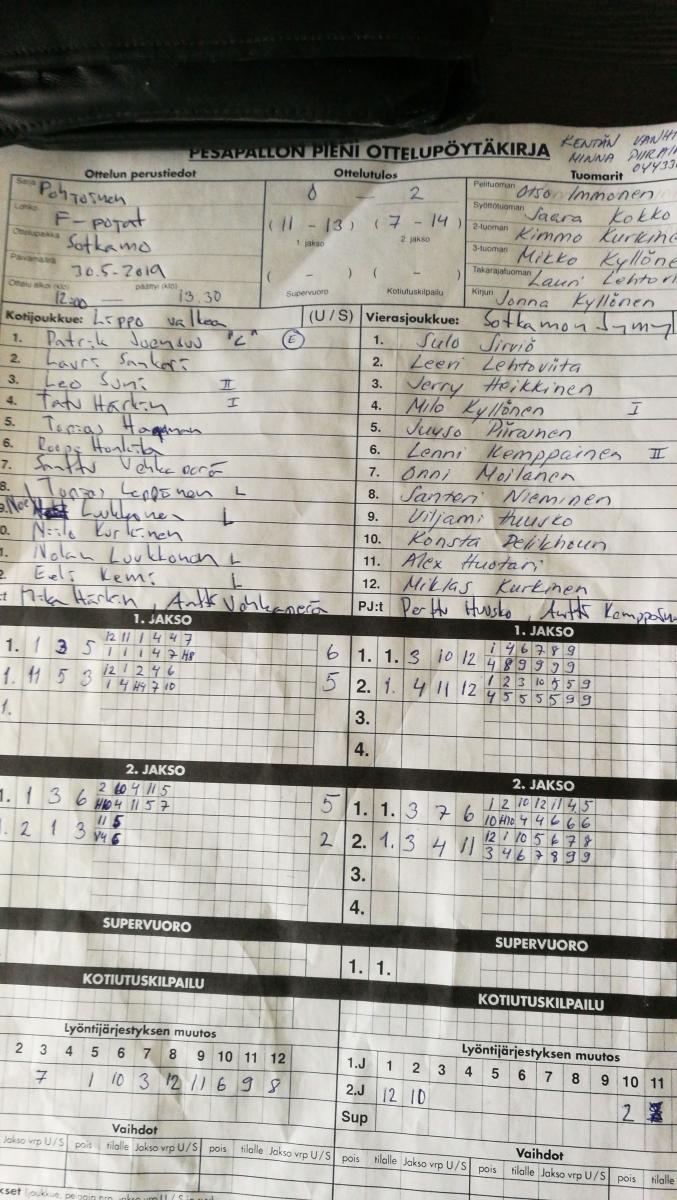 KENTÄN VANHI
PESÄPALLON PIENI OTTELUPÖYTÄKIRJA
MINNA
Ottelun perustiedot Ottelutulos Tuomarit
Sarja Pohjoinen
0 — 2
Pelituomari Otso Immonen
Lohko F-pojat
Syöttötuomari Jaara Kokko
(11 - 13) (7 - 14)
1. jakso 2. jakso
2-tuomari Kimmo Kurkine
Ottelupaikka Sotkamo
3-tuomari Mikko Kyllöne
Päivämäärä 30.5-2019
( - ) ( - )
Takarajatuomari Lauri Lehtovi
Ottelu alkoi (klo) 12:00 — päättyi (klo) 13.30
Supervuoro Kotiutuskilpailu
Kirjuri Jonna Kyllönen
Kotijoukkue: Lippo valkea (U / S) Vierasjoukkue: Sotkamon Jymy
1. Patrik Joensuu "C" E
2. Lauri Sankari
3. Leo Suni II
4. Tatu Härkin I
5. Topias Hagman
6. Roope Honkila
7. Santtu Vehkaperä
8. Topias Lepponen L
9. Luukkonen L
0. Niilo Kurkinen
1. Nolan Luukkonen L
2. Eeli Kemi L
:t Mika Härkin, Antti Vehkaperä
1. Sulo Sirviö
2. Leevi Lehtoviita
3. Jerry Heikkinen
4. Milo Kyllönen I
5. Juuso Piirainen
6. Lenni Kemppainen II
7. Onni Moilanen
8. Santeri Nieminen
9. Viljami Huusko
10. Konsta Pelikhoun
11. Alex Huotari
12. Miklas Kurkinen
PJ:t Perttu Huusko, Antti Kemppain
1. JAKSO
12 11 1 4 4 7
1. 1 3 5 1 1 1 4 7 H8 6
1. 11 5 3 12 1 2 4 6 5
1 4 H4 7 10
1.
1. JAKSO
1 4 6 7 8 9
1. 1. 3 10 12 4 8 9 9 9 9
2. 1. 4 11 12 1 2 3 10 5 5 9
4 5 5 5 5 9 9
3.
4.
2. JAKSO
2 10 4 11 5
1. 1 3 6 H10 4 11 5 7 5
. 2 1 3 11 5 2
V4 6
2. JAKSO
1. 1. 3 7 6 1 2 10 12 11 4 5
10 H10 4 4 6 6 6
2. 1. 3 4 11 12 1 10 5 6 7 8
3 4 6 7 8 9 9
3.
4.
SUPERVUORO
SUPERVUORO
1. 1.
KOTIUTUSKILPAILU
KOTIUTUSKILPAILU
Lyöntijärjestyksen muutos
2 3 4 5 6 7 8 9 10 11 12
7 1 10 3 12 11 6 9 8
Lyöntijärjestyksen muutos
1.J 1 2 3 4 5 6 7 8 9 10 11
2.J 12 10
Sup 2
Vaihdot
Jakso vrp U/S pois tilalle Jakso vrp U/S pois tilalle Jakso vrp U/S
Vaihdot
pois tilalle Jakso vrp U/S pois tilalle Jakso vrp U/S pois tilalle